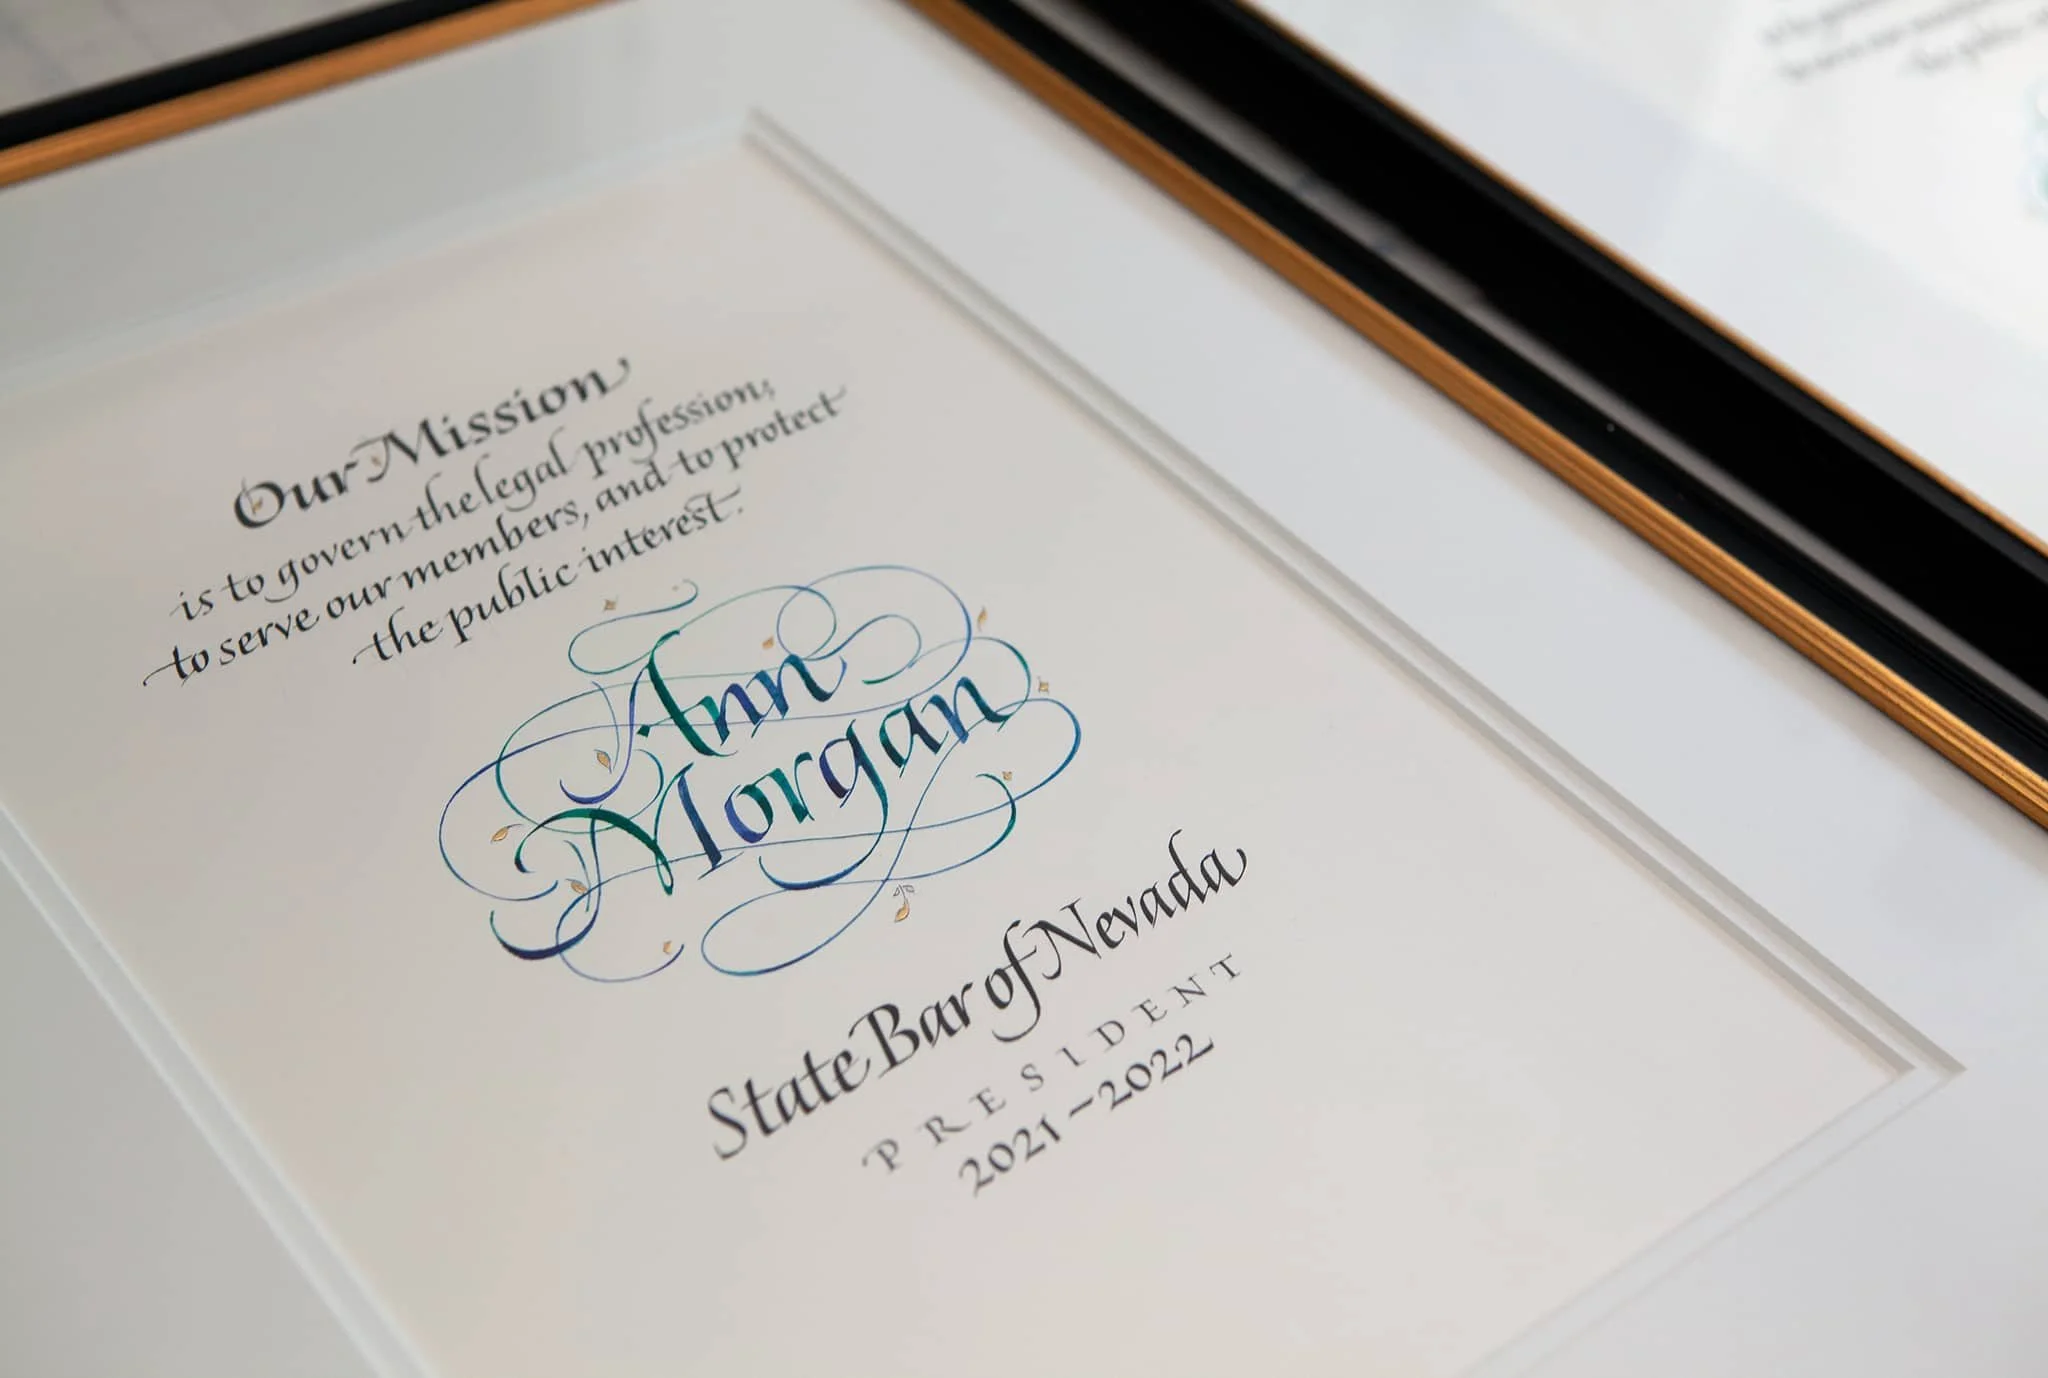 Our Mission
is to govern the legal profession,
to serve our members, and to protect
the public interest.
Ann
Morgan
State Bar of Nevada
PRESIDENT
2021–2022